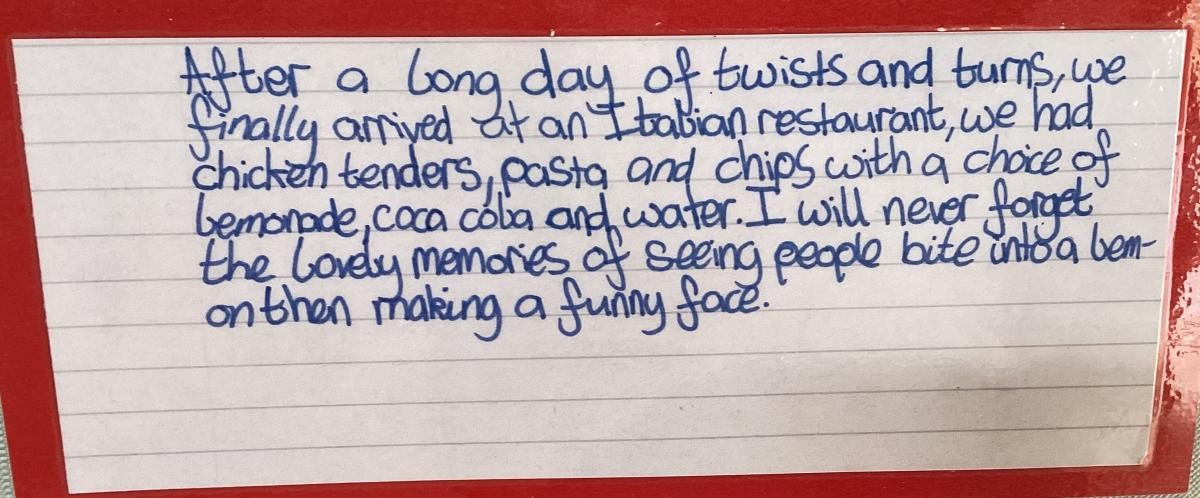 After a long day of twists and turns, we
finally arrived at an Italian restaurant, we had
chicken tenders, pasta and chips with a choice of
lemonade, coca cola and water. I will never forget
the lovely memories of seeing people bite into a lem-
on then making a funny face.